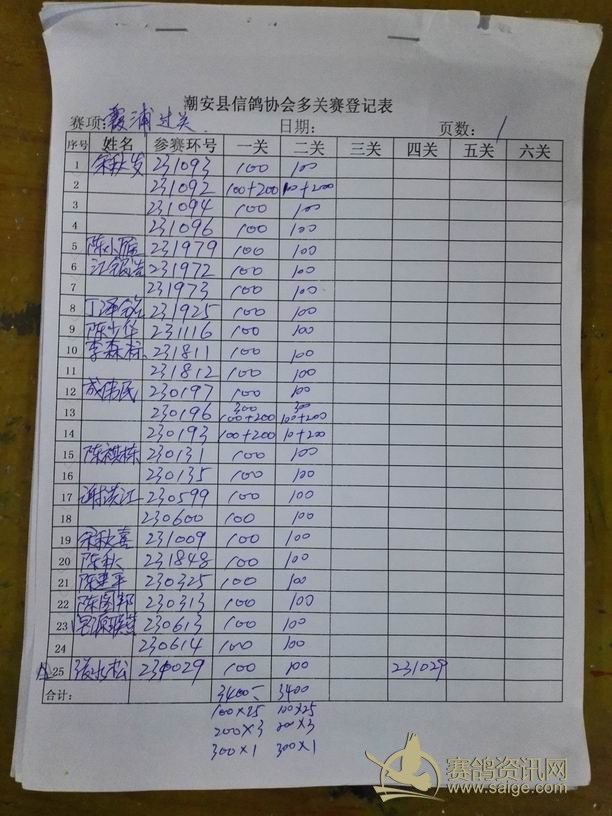 潮安县信鸽协会多关赛登记表
赛项:霞浦过关 日期: 页数:1
序号 姓名 参赛环号 一关 二关 三关 四关 五关 六关
1 231093 100 100
2 231092 100+200 100+200
3 231094 100 100
4 231096 100 100
5 陈小 231979 100 100
6 江 231972 100 100
7 231973 100 100
8 丁泽 231925 100 100
9 陈少 231116 100 100
10 李森标 231811 100 100
11 231812 100 100
12 成伟民 230197 100 100
13 230196 300 100+200 300 100+200
14 230193 100+200 10+200
15 陈祺栋 230131 100 100
16 230135 100 100
17 谢洪江 230599 100 100
18 230600 100 100
19 秋喜 231009 100 100
20 陈秋 231848 100 100
21 陈 平 230325 100 100
22 陈 邦 230313 100 100
23 230613 100 100
24 230614 100 100
25 张水松 230029 100 100 231029
合计: 3400 3400
100×25 100×25
200×3 200×3
300×1 300×1
赛鸽资讯网
www.saige.com